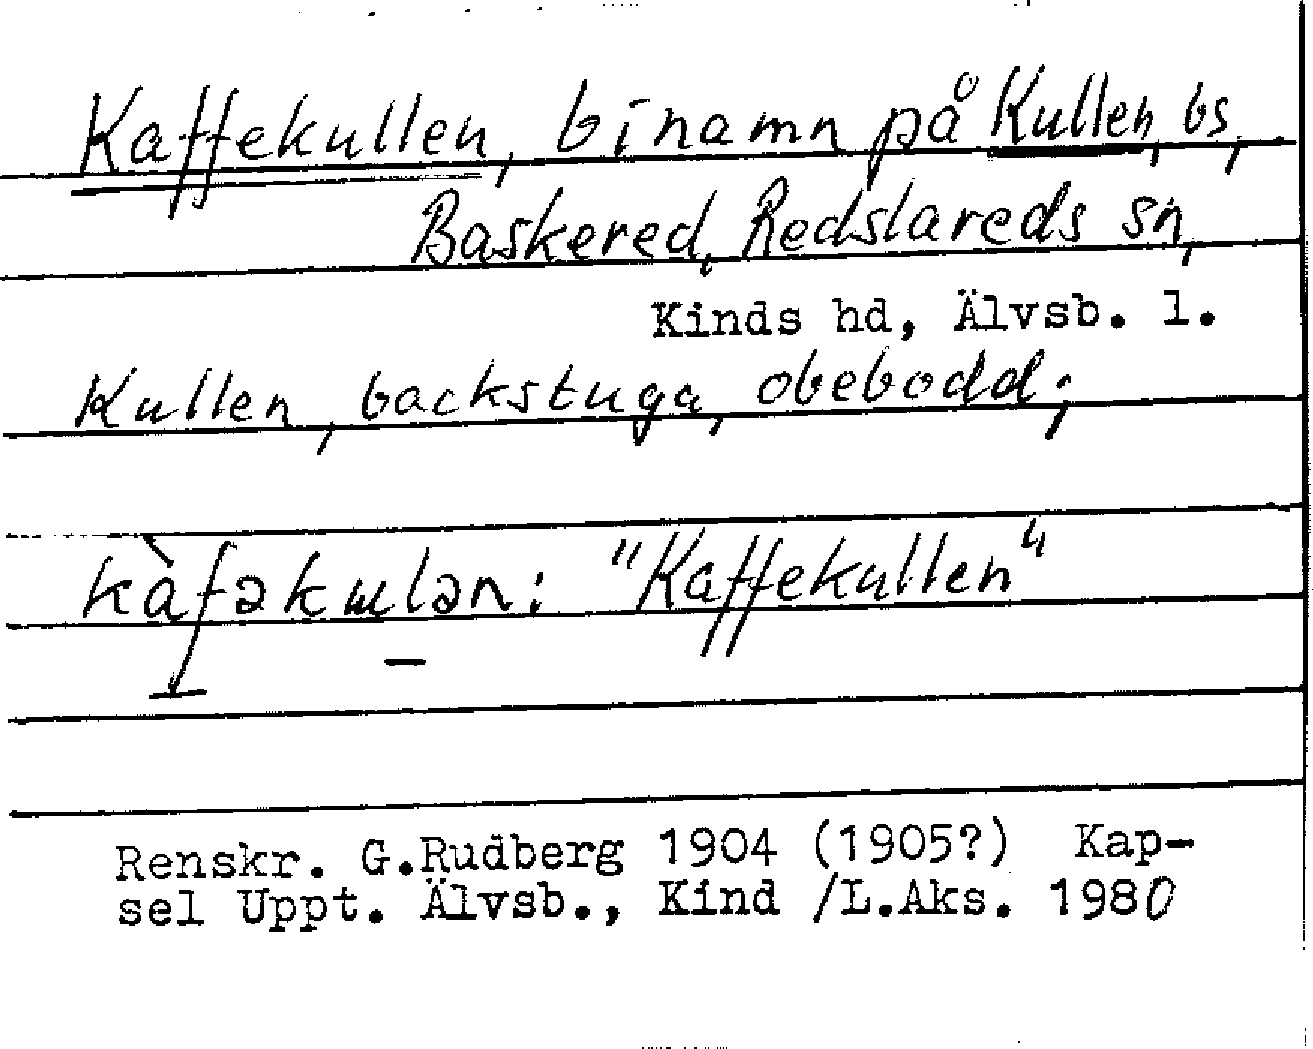 Kaffekullen, binamn på Kullen, bs,
Baskered, Redslareds sn,
Kinds hd, Älvsb. l.
Kullen, backstuga, obebodd;
kàfəkɯlən: "Kaffekullen"
Renskr. G.Rudberg 1904 (1905?) Kap-
sel Uppt. Älvsb., Kind /L.Aks. 1980